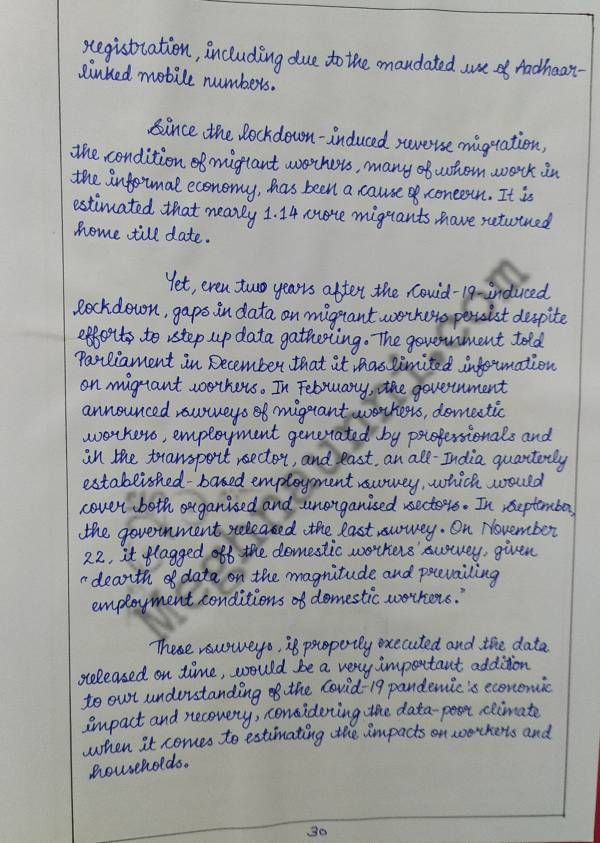 registration, including due to the mandated use of Aadhaar-
linked mobile numbers.
Since the lockdown-induced reverse migration,
the condition of migrant workers, many of whom work in
the informal economy, has been a cause of concern. It is
estimated that nearly 1.14 crore migrants have returned
home till date.
Yet, even two years after the Covid-19-induced
lockdown, gaps in data on migrant workers persist despite
efforts to step up data gathering. The government told
Parliament in December that it has limited information
on migrant workers. In February, the government
announced surveys of migrant workers, domestic
workers, employment generated by professionals and
in the transport sector, and last, an all-India quarterly
established-based employment survey, which would
cover both organised and unorganised sectors. In September,
the government released the last survey. On November
22, it flagged off the domestic workers' survey, given
"dearth of data on the magnitude and prevailing
employment conditions of domestic workers."
These surveys, if properly executed and the data
released on time, would be a very important addition
to our understanding of the Covid-19 pandemic's economic
impact and recovery, considering the data-poor climate
when it comes to estimating the impacts on workers and
households.
30